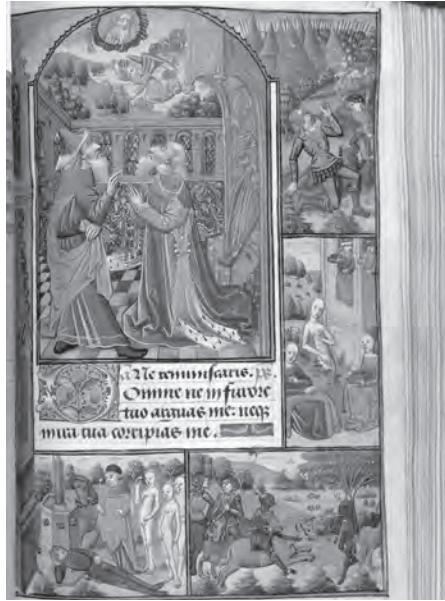 a Ne reminiscaris. ps.
Domine ne in furore
tuo arguas me: neqz
in ira tua corripias me.